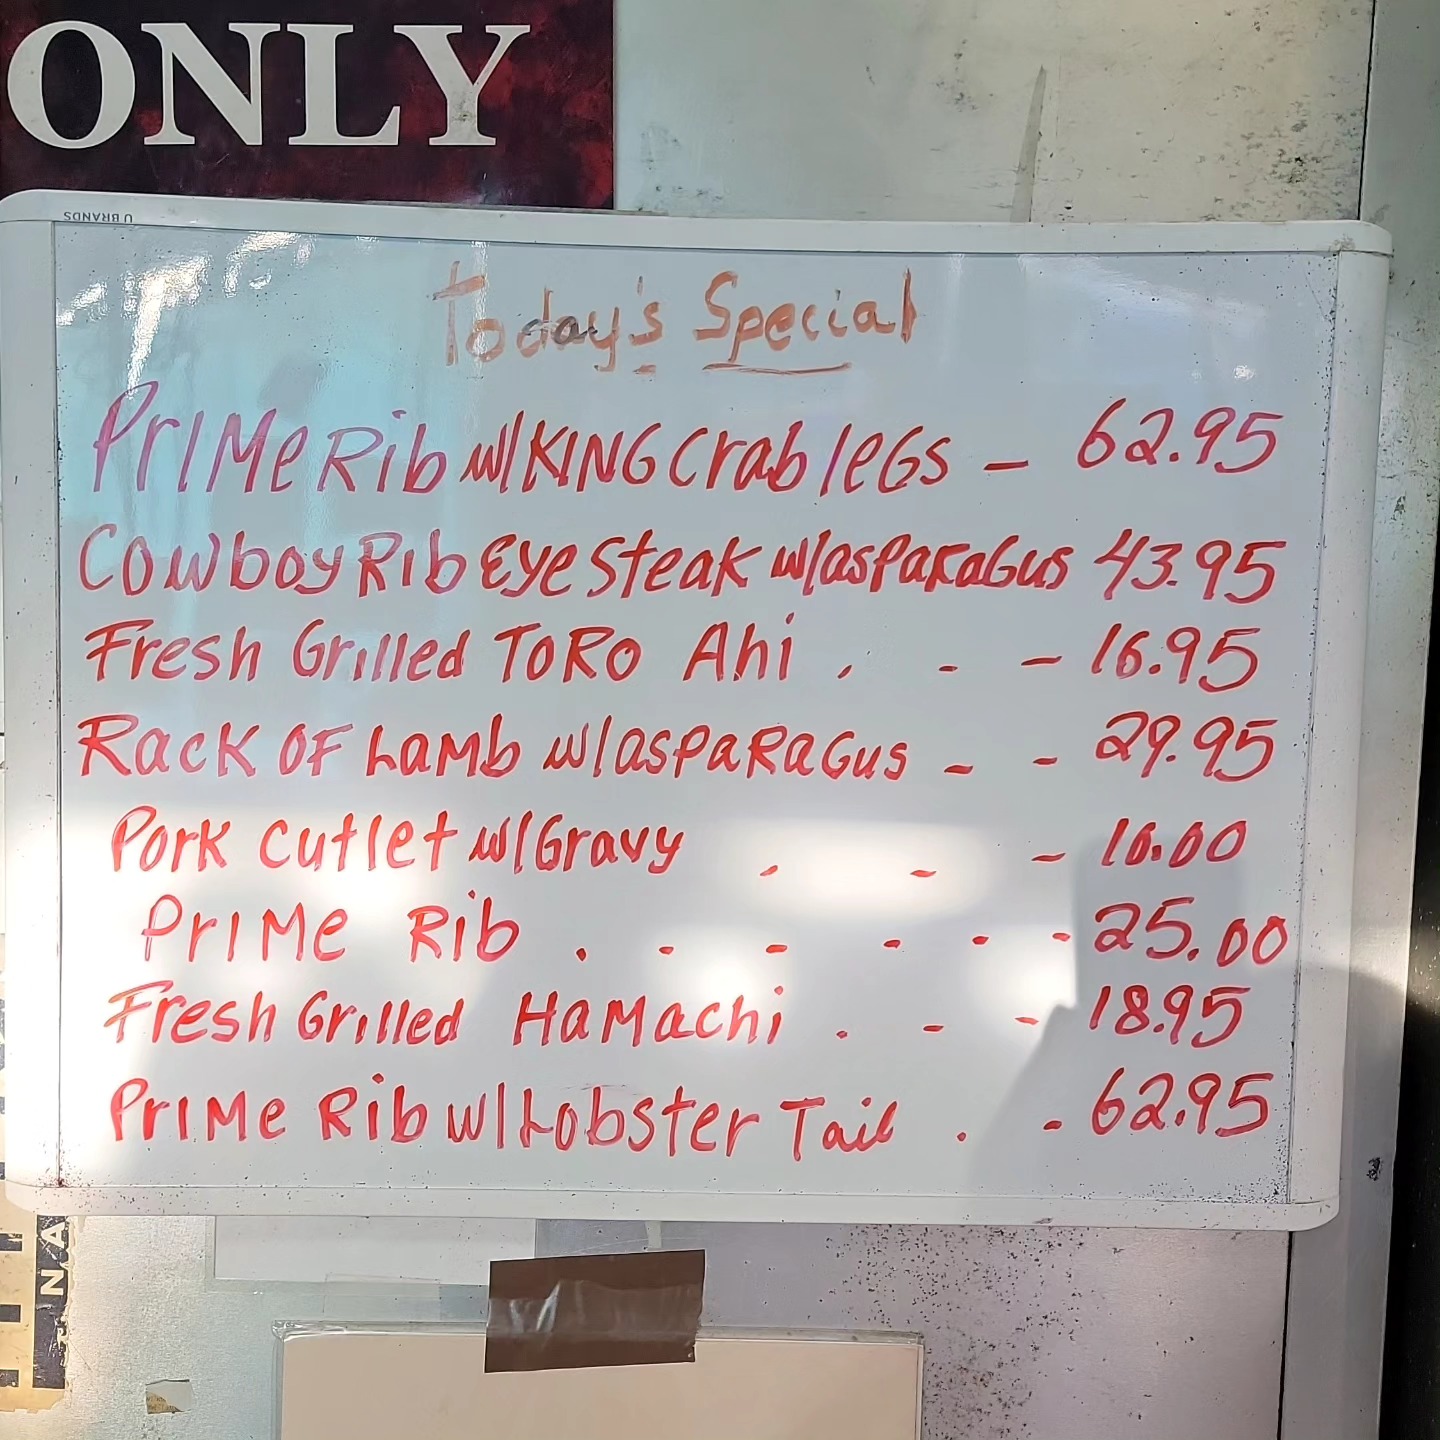 ONLY
U BRANDS
Today's Special
Prime Rib w/KING Crab leGs - 62.95
Cowboy Rib Eye Steak w/asparaGus 43.95
Fresh Grilled ToRo Ahi . - - 16.95
Rack OF Lamb w/aspaRaGus - - 29.95
Pork Cutlet w/Gravy - - - 10.00
PriMe Rib . - - - - - 25.00
Fresh Grilled HaMachi . - - 18.95
PriMe Rib w/Lobster Tail . - 62.95